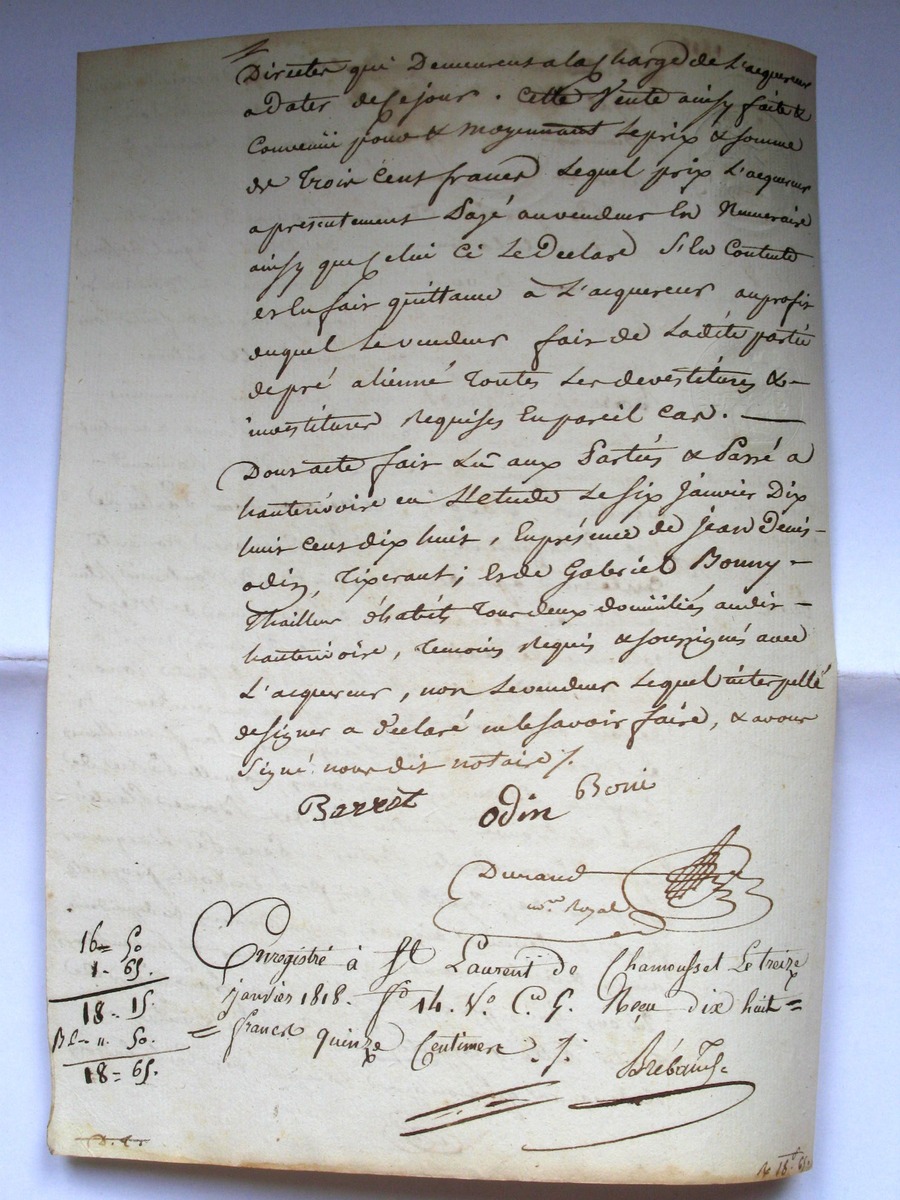 Directes qui Demeurent a la Charge de L'acquereur
a Dater de Ce jour. Cette Vente ainsy faite &
Convenüe pour & moyennant Le prix & somme
de Trois Cent francs Lequel prix L'acquereur
a presentement Payé au vendeur En Numeraire
ainsy que Celui Ci Le Declare S'En Contente
et En fait quittance à L'acquereur au profit
duquel Le vendeur fait de Ladite partie
de pré alienné Toutes Les devestitures & -
investitures Requises En pareil Cas. —
Dont acte fait Lû aux Parties & Passé a
hauterivoire en L'Etude Le Six Janvier Dix
huit Cent dix huit, En présence de Jean Denis -
odin, Tixerant; Et de Gabriel Bonny -
Thailleur d'habits Tous deux domiciliés audit -
hauterivoire, Temoins Requis & soussignés avec
L'acquereur, non Le vendeur Lequel interpellé
de signer a déclaré ne le savoir faire, & avons
Signé nous dit notaire /.
Barrot odin Boni
Durand
no.re Royal
Enregistré à St Laurent de Chamousset Le treize
janvier 1818. f.o 14. V.o C.e 5. Reçu dix huit =
= francs quinze Centimes. /.
16 = 50
1 - 65.
18 - 15.
50.
18 = 65.